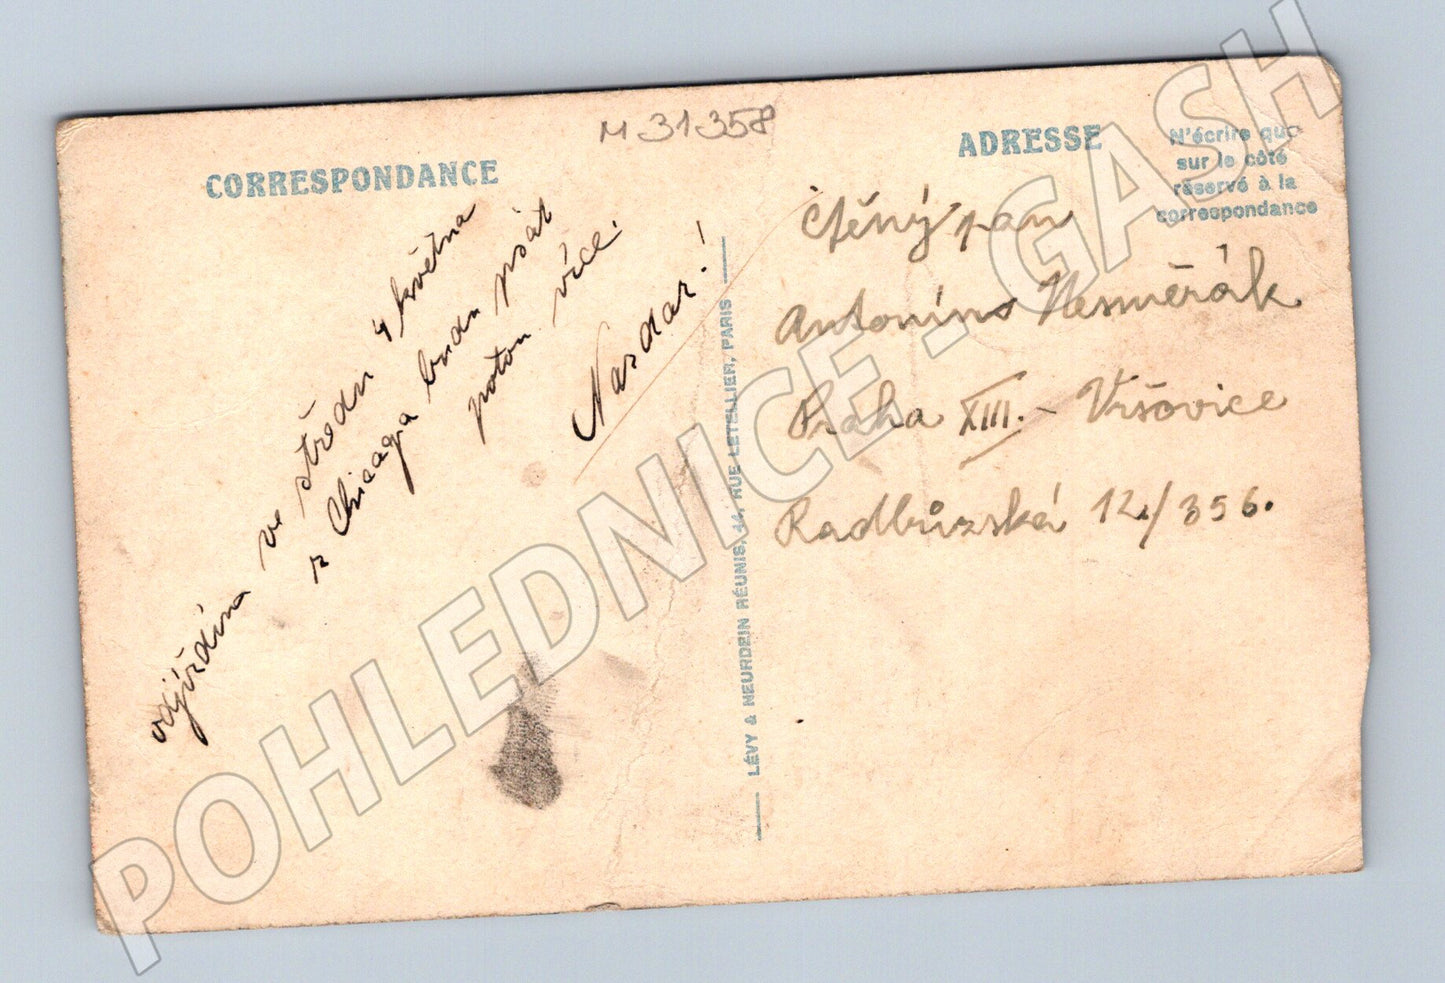 M 31358
CORRESPONDANCE
odjíždíme ve středu 4 května
z Chicaga budu psát
potom více.
Nazdar!
LÉVY & NEURDEIN RÉUNIS, 44, RUE LETELLIER, PARIS
ADRESSE
N'écrire que
sur le côté
réservé à la
correspondance
Ctěný pan
Antonín Nesměrák
Praha XIII. - Vršovice
Radbůzská 12./356.
POHLEDNICE - GASH